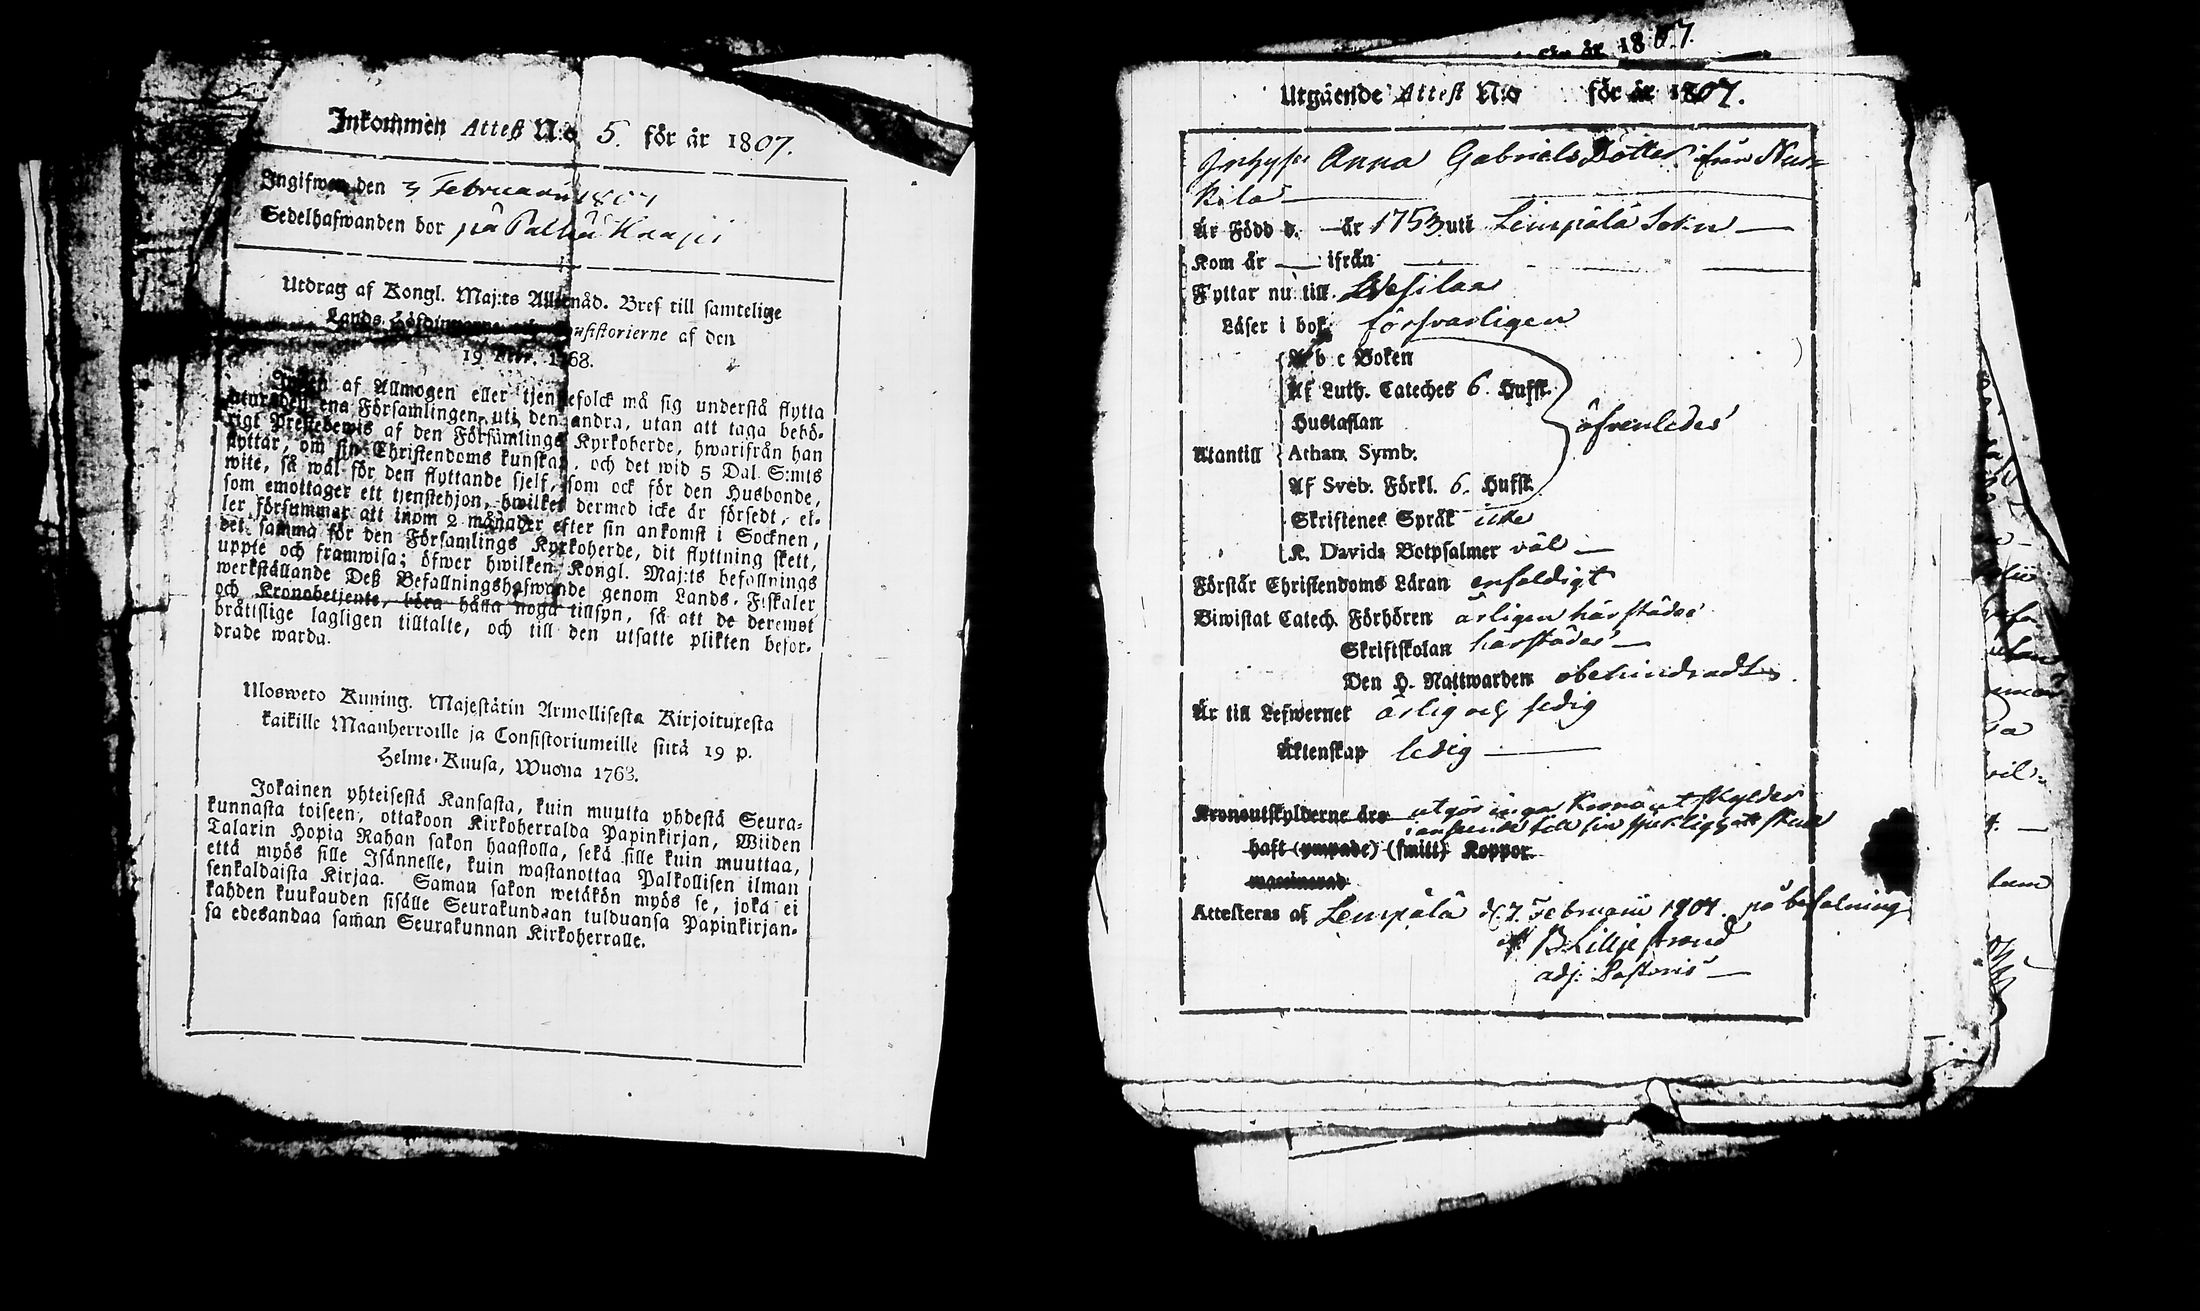 Inkommen Attest N:o 5. för år 1807.
Ingifwen den 3 Februarii 1807
Sedelhafwanden bor på
Utdrag af Kongl. Maj:ts Allernåd. Bref till samtelige
Lands-Höfdingarne och Consistorierne af den
19 Febr. 1768.
Ingen af Allmogen eller tjenstefolck må sig understå flytta
ena Församlingen uti den andra, utan att taga behö-
rigt Prestebewis af den Församlings Kyrkoherde, hwarifrån han
flyttar, om sin Christendoms kunskap, och det wid 5 Dal. S:mts
wite, så wäl för den flyttande sjelf, som ock för den Husbonde,
som emottager ett tjenstehjon, hwilket dermed icke är försedt, el-
ler försummar att inom 2 månader efter sin ankomst i Socknen,
det samma för den Församlings Kyrkoherde, dit flyttning skett,
uppte och framwisa; öfwer hwilken Kongl. Maj:ts befallnings
werkställande Deß Befallningshafwande genom Lands-Fiskaler
och Kronobetjente, böra hålla noga tillsyn, så att de deremot
bråttslige lagligen tilltalte, och till den utsatte plikten befor-
drade warda.
Ulosweto Kuning. Majestätin Armollisesta Kirjoituxesta
kaikille Maanherroille ja Consistoriumeille siitä 19 p.
Helme-Kuusa, Wuona 1768.
Jokainen yhteisestä Kansasta, kuin muutta yhdestä Seura-
kunnasta toiseen, ottakoon Kirkoherralda Papinkirjan, Wiiden
Talarin Hopia Rahan sakon haastolla, sekä sille kuin muuttaa,
että myös sille Isännelle, kuin wastanottaa Palkollisen ilman
senkaldaista Kirjaa. Saman sakon wetäkön myös se, joka ei
kahden kuukauden sisälle Seurakundaan tulduansa Papinkirjan-
sa edesandaa saman Seurakunnan Kirkoherralle.
för år 1807.
Utgående Attest N:o för år 1807.
Anna Gabriels Dotter från
kila
Är Född d. — år 1753 uti Lempälä Sokn —
Kom år — ifrån —
Flyttar nu till Wesilax
Läser i bok försvarligen
A b c Boken
Af Luth. Cateches 6. Hufst.
Hustaflan
öfvenledes
Utantill
Athan. Symb.
Af Sveb. Förkl. 6. Hufst.
Skriftenes Språk icke
K. Davids Botpsalmer väl —
Förstår Christendoms Läran enfaldigt
Biwistat Catech. Förhören årligen härstädes
Skriftskolan härstädes —
Den H. Nattwarden obehindradt
Är till Lefwernet ärlig och sedig
Äktenskap ledig —
Kronoutskylderne äro utgör inga Kronoutskylder
i anseende till sin sjuklighet
haft (ympade) (smitt) Koppor.
Attesteras af Lempälä d. 7. Februarii 1807. på befalning
af B. Lilljestrand
adj: Pastoris —